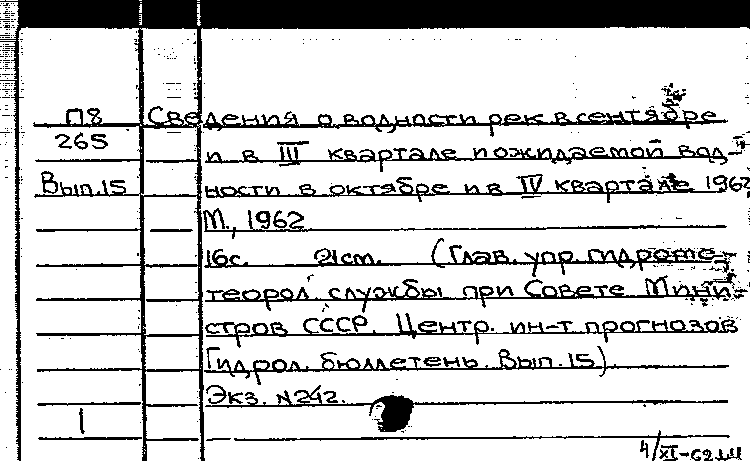 П8 Сведения о водности рек в сентябре
265 и в III квартале и ожидаемой вод-
Вып.15 ности в октябре и в IV квартале 1962
М., 1962
16с. 21см. (Глав. упр. гидроме-
теорол. службы при Совете Мини-
стров СССР. Центр. ин-т прогнозов
Гидрол. бюллетень. Вып. 15).
Экз. №242.
1
4/XI-62